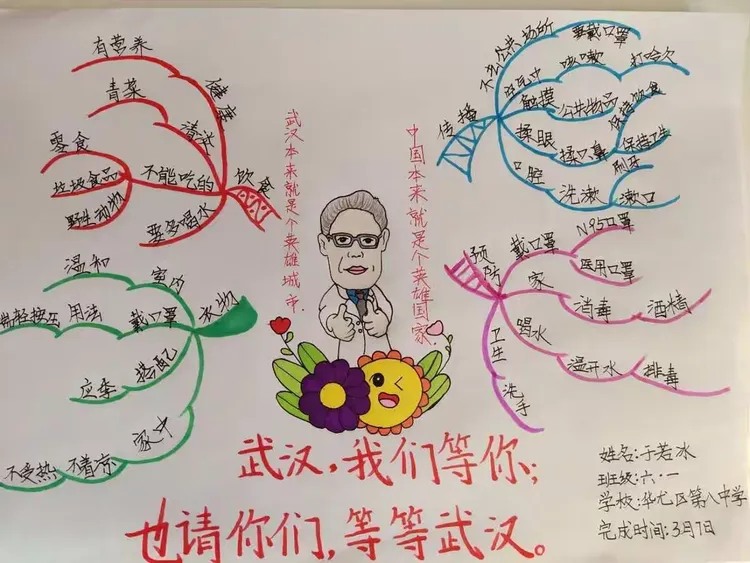 有营养
青菜
健康
清淡
零食
垃圾食品
野生动物
不能吃的
要多喝水
饮食
武汉本来就是个英雄城市.
中国本来就是个英雄国家.
传播
不去公共场所
要戴口罩
空气中
咳嗽
打哈欠
触摸
公共物品
保持饮食
揉眼
揉口鼻
保持卫生
口腔
洗漱
刷牙
漱口
温和
室内
衣物
用法
戴口罩
应季
搭配
不受热
不着凉
家中
预防
戴口罩
N95口罩
医用口罩
家
消毒
酒精
喝水
温开水
排毒
卫生
洗手
武汉,我们等你;
也请你们,等等武汉。
姓名:于若冰
班级:六·一
学校:华龙区第八中学
完成时间:3月7日